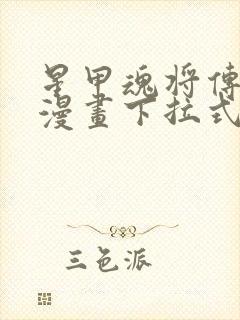 星甲魂将傳
漫畫下拉式
三色派